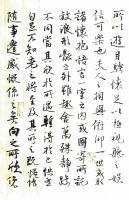 所以遊目騁懷足以極視聽之娛
信可樂也夫人之相與俯仰一世或
諸懷抱悟言一室之內或因寄所託
放浪形骸之外雖趣舍萬殊靜躁
不同當其欣於所遇暫得於己快
自足不知老之將至及其所之既惓情
隨事遷感慨係之矣向之所欣